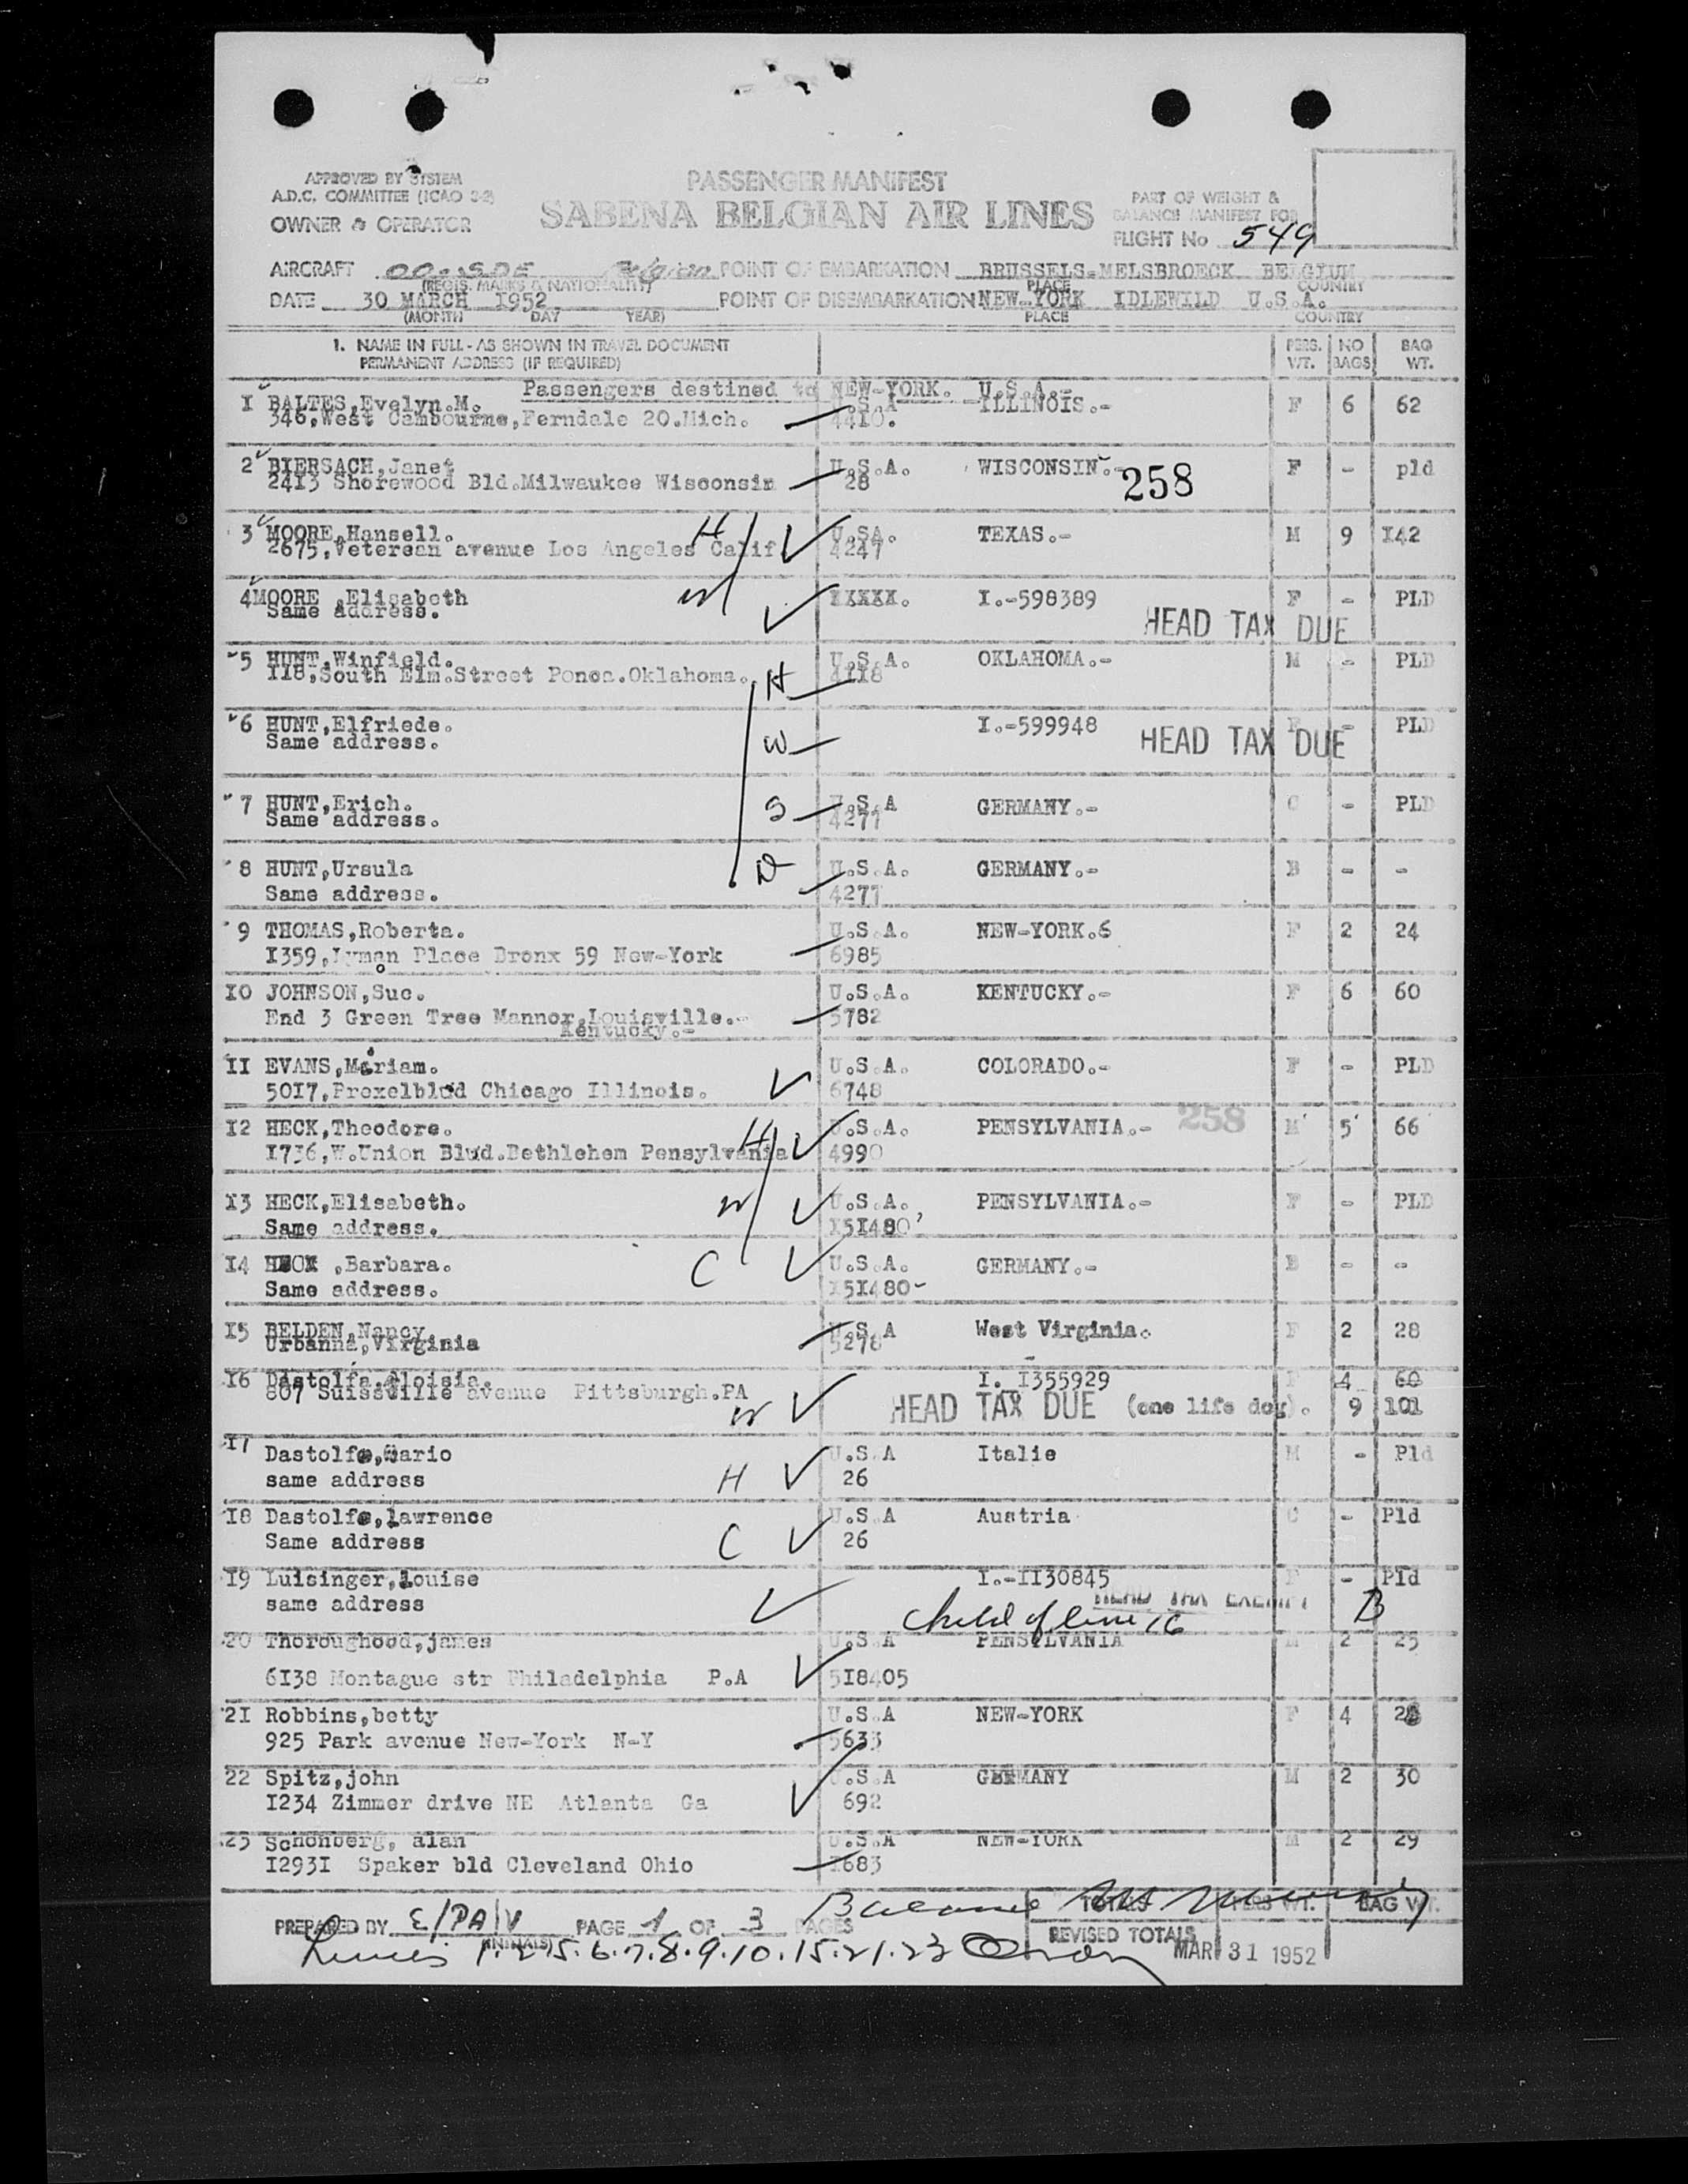 APPROVED BY SYSTEM
A.D.C. COMMITTEE (ICAO 3-2)
OWNER & OPERATOR
PASSENGER MANIFEST
SABENA BELGIAN AIR LINES
PART OF WEIGHT &
BALANCE MANIFEST FOR
FLIGHT No 549
AIRCRAFT OO-SDE Belgian POINT OF EMBARKATION BRUSSELS-MELSBROECK BELGIUM
(REGIS. MARKS & NATIONALITY) PLACE COUNTRY
DATE 30 MARCH 1952 POINT OF DISEMBARKATION NEW-YORK IDLEWILD U.S.A.
(MONTH DAY YEAR) PLACE COUNTRY
1. NAME IN FULL - AS SHOWN IN TRAVEL DOCUMENT PERS. NO BAG
PERMANENT ADDRESS (IF REQUIRED) WT. BAGS WT.
Passengers destined to NEW-YORK. U.S.A.-
I BALTES,Evelyn.M. .S.A -ILLINOIS.- F 6 62
346,West Cambourne,Ferndale 20.Mich. 4410.
2 BIERSACH,Janet U.S.A. WISCONSIN.- F - pld
2413 Shorewood Bld.Milwaukee Wisconsin 28 258
3 MOORE,Hansell. H U.SA. TEXAS.- M 9 I42
2675,Veterean avenue Los Angeles Calif. 4247
4 MOORE ,Elisabeth W XXXXX. I.-598389 F - PLD
Same address. HEAD TAX DUE
5 HUNT,Winfield. U.S.A. OKLAHOMA.- M - PLD
II8,South Elm.Street Ponca.Oklahoma. H 4II8
6 HUNT,Elfriede. I.-599948 F - PLD
Same address. W HEAD TAX DUE
7 HUNT,Erich. S U.S.A GERMANY.- C - PLD
Same address. 4277
8 HUNT,Ursula D U.S.A. GERMANY.- B - -
Same address. 4277
9 THOMAS,Roberta. U.S.A. NEW-YORK.6 F 2 24
I359,Lyman Place Bronx 59 New-York 6985
IO JOHNSON,Sue. U.S.A. KENTUCKY.- F 6 60
End 3 Green Tree Mannor,Louisville.- 5782
Kentucky.-
II EVANS,Miriam. U.S.A. COLORADO.- F - PLD
50I7,Prexelblvd Chicago Illinois. 6748
I2 HECK,Theodore. H U.S.A. PENSYLVANIA.- 258 M 5 66
I736,W.Union Blvd.Bethlehem Pensylvania 4990
I3 HECK,Elisabeth. W U.S.A. PENSYLVANIA.- F - PLD
Same address. I5I480
I4 HECK ,Barbara. C U.S.A. GERMANY.- B - -
Same address. I5I480-
I5 BELDEN,Nancy U.S.A West Virginia. F 2 28
Urbanna,Virginia 5276
I6 Dastolfo,Aloisia. I. I355929 F 4 60
807 Suissville avenue Pittsburgh.PA W HEAD TAX DUE (one life dog). 9 101
I7
Dastolfo,Dario U.S.A Italie M - Pld
same address H 26
I8 Dastolfo,lawrence U.S.A Austria C - Pld
Same address C 26
I9 Luisinger,louise I.-II30845 F - Pld
same address HEAD TAX EXEMPT B
Child of line 16
20 Thoroughood,james U.S.A PENSYLVANIA M 2 25
6I38 Montague str Philadelphia P.A 5I8405
2I Robbins,betty U.S.A NEW-YORK F 4
925 Park avenue New-York N-Y 5633
22 Spitz,john U.S.A GERMANY M 2 30
I234 Zimmer drive NE Atlanta Ga 692
23 Schonberg, alan U.S.A NEW-YORK M 2 29
I293I Spaker bld Cleveland Ohio I683
Balance
PREPARED BY E/PA/V PAGE 1 OF 3 PAGES TOTALS PERS WT. BAG WT.
(INITIALS) REVISED TOTALS
1.2.5.6.7.8.9.10.15.21.23 MAR 31 1952